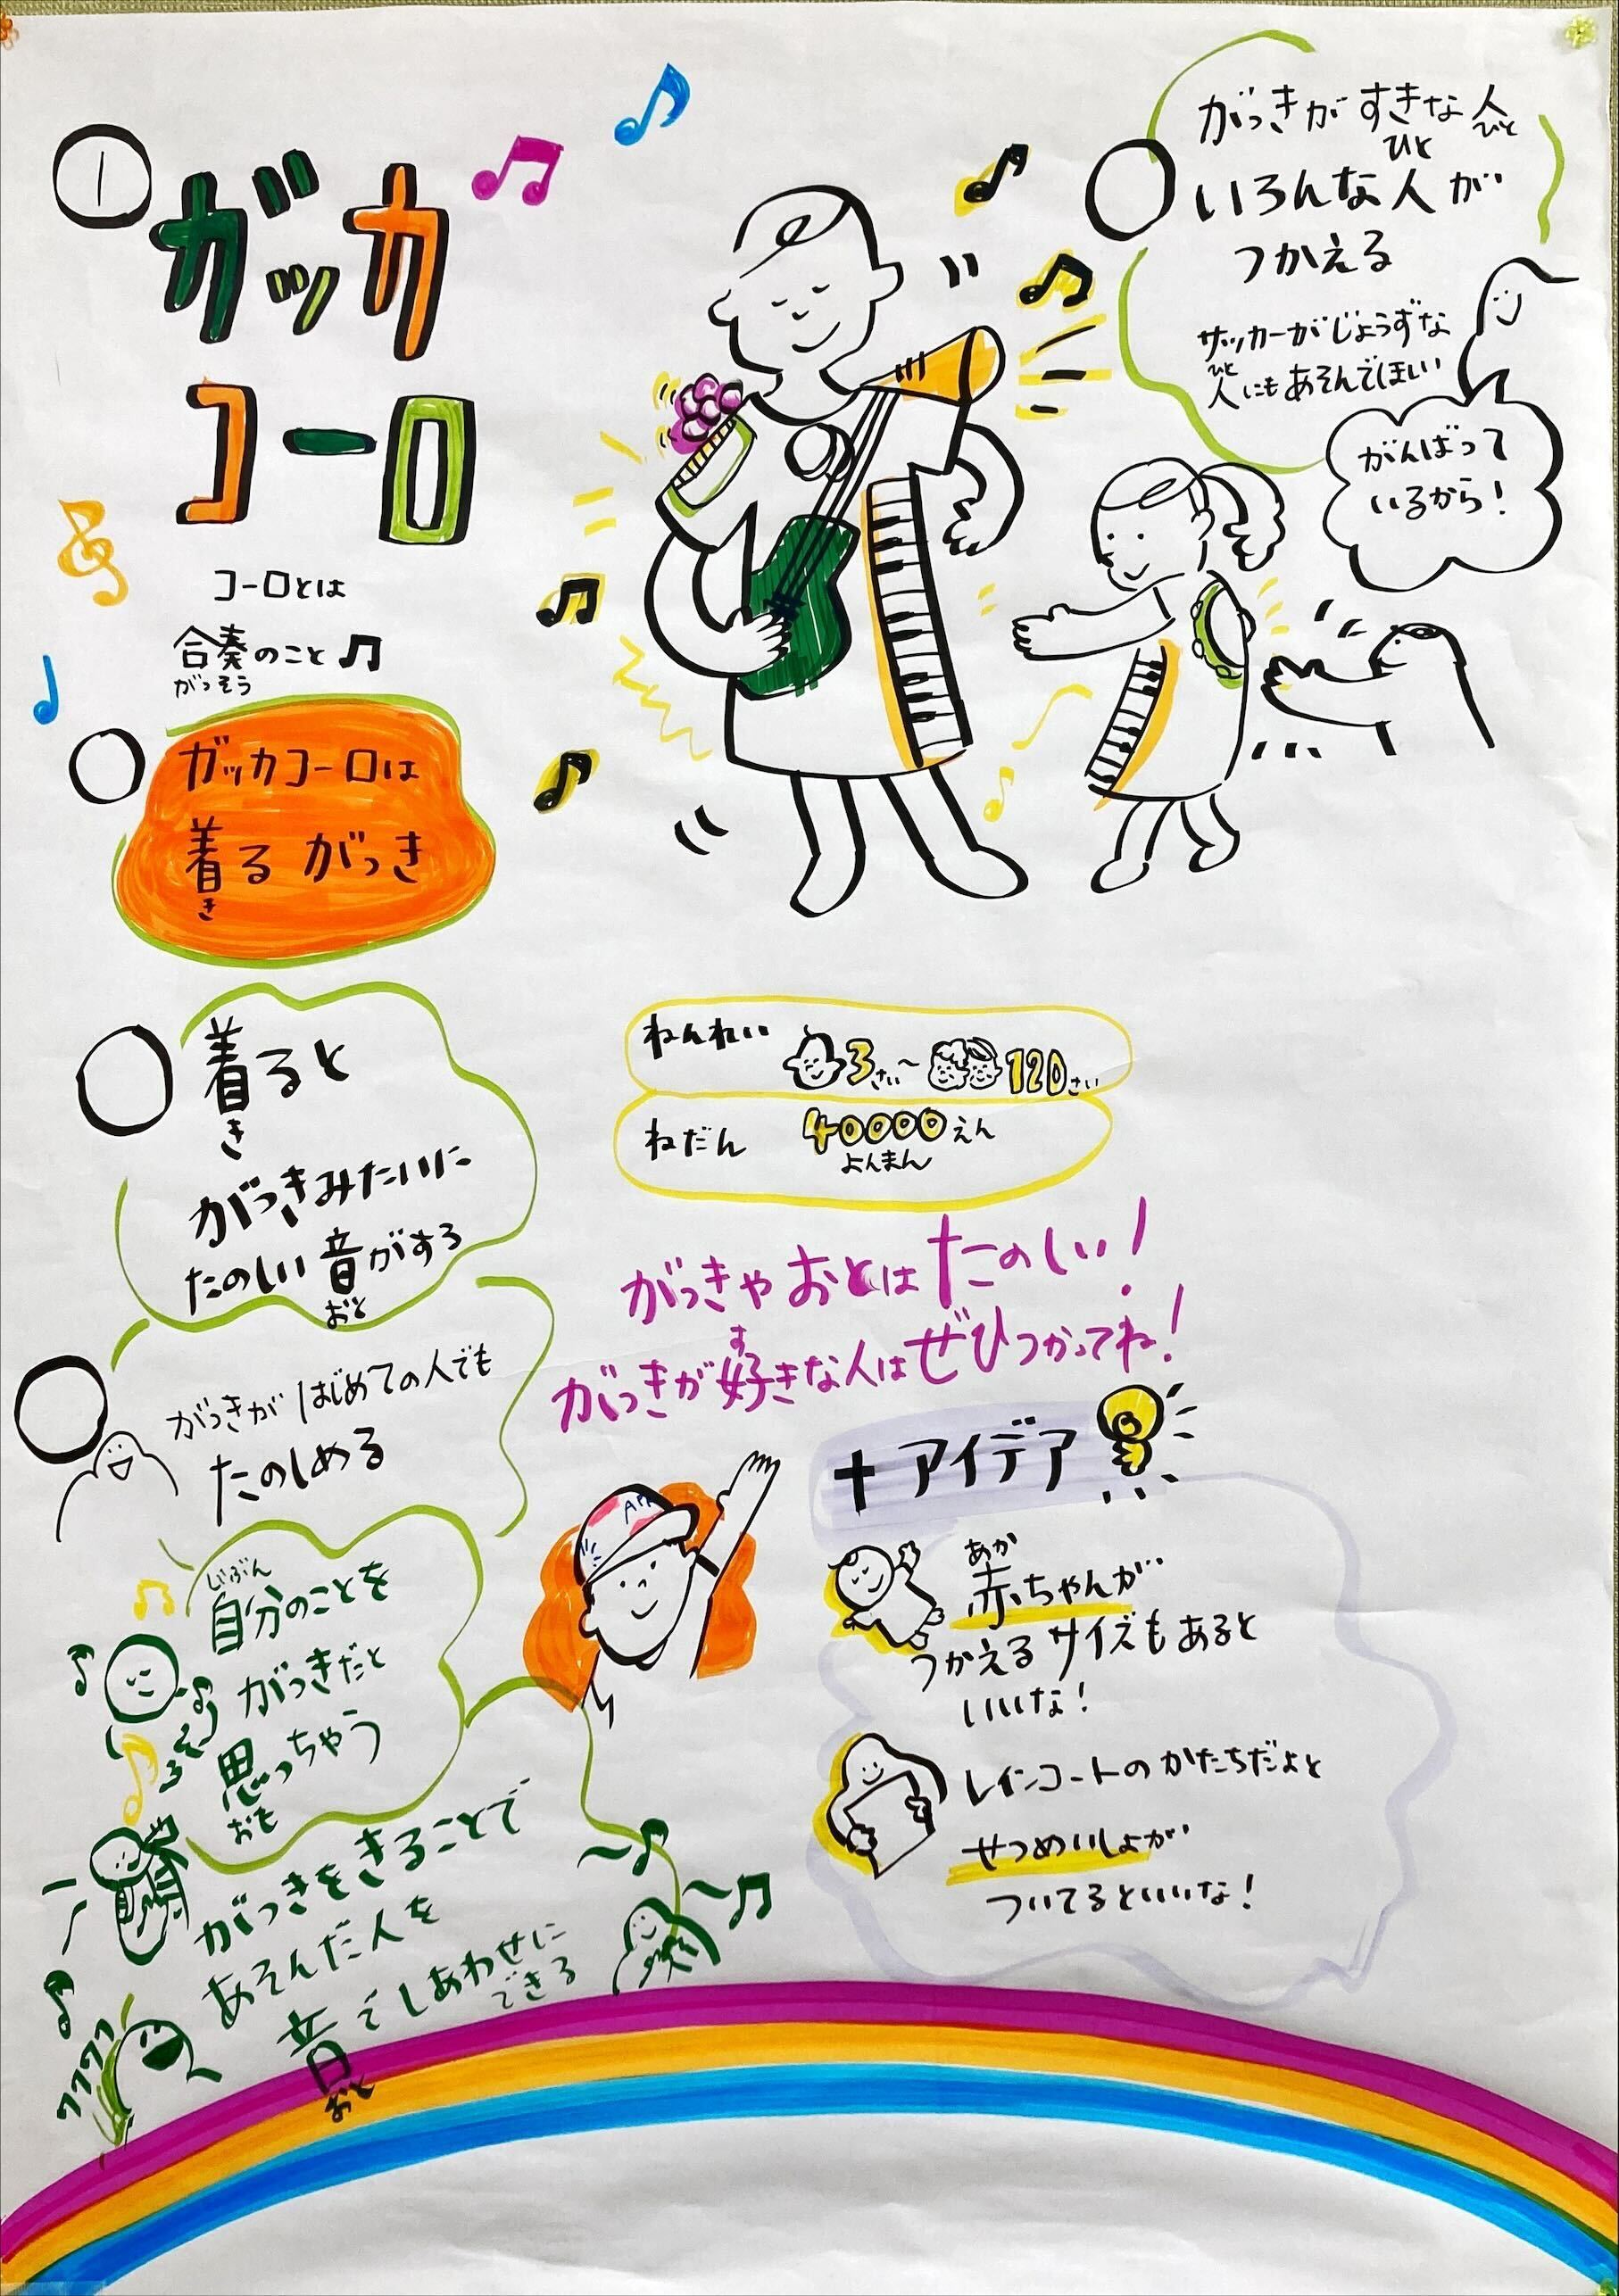 ①
ガッカ
コーロ
コーロとは
合奏のこと
がっそう
ガッカコーロは
着る がっき
き
着ると
き
がっきみたいに
たのしい音がする
おと
がっきがはじめての人でも
たのしめる
じぶん
自分のことを
がっきだと
思っちゃう
おも
がっきをきることで
あそんだ人を
音でしあわせに
できる
おと
ワクワク
がっきがすきな人
ひと
ひと
いろんな人が
つかえる
サッカーがじょうずな
ひと
人にもあそんでほしい
がんばって
いるから!
ねんれい 3さい~120さい
ねだん 40000えん
よんまん
がっきやおとはたのしい!
す
がっきが好きな人はぜひつかってね!
+アイデア
あか
赤ちゃんが
つかえるサイズもあると
いいな!
レインコートのかたちだよと
せつめいしょが
ついてるといいな!